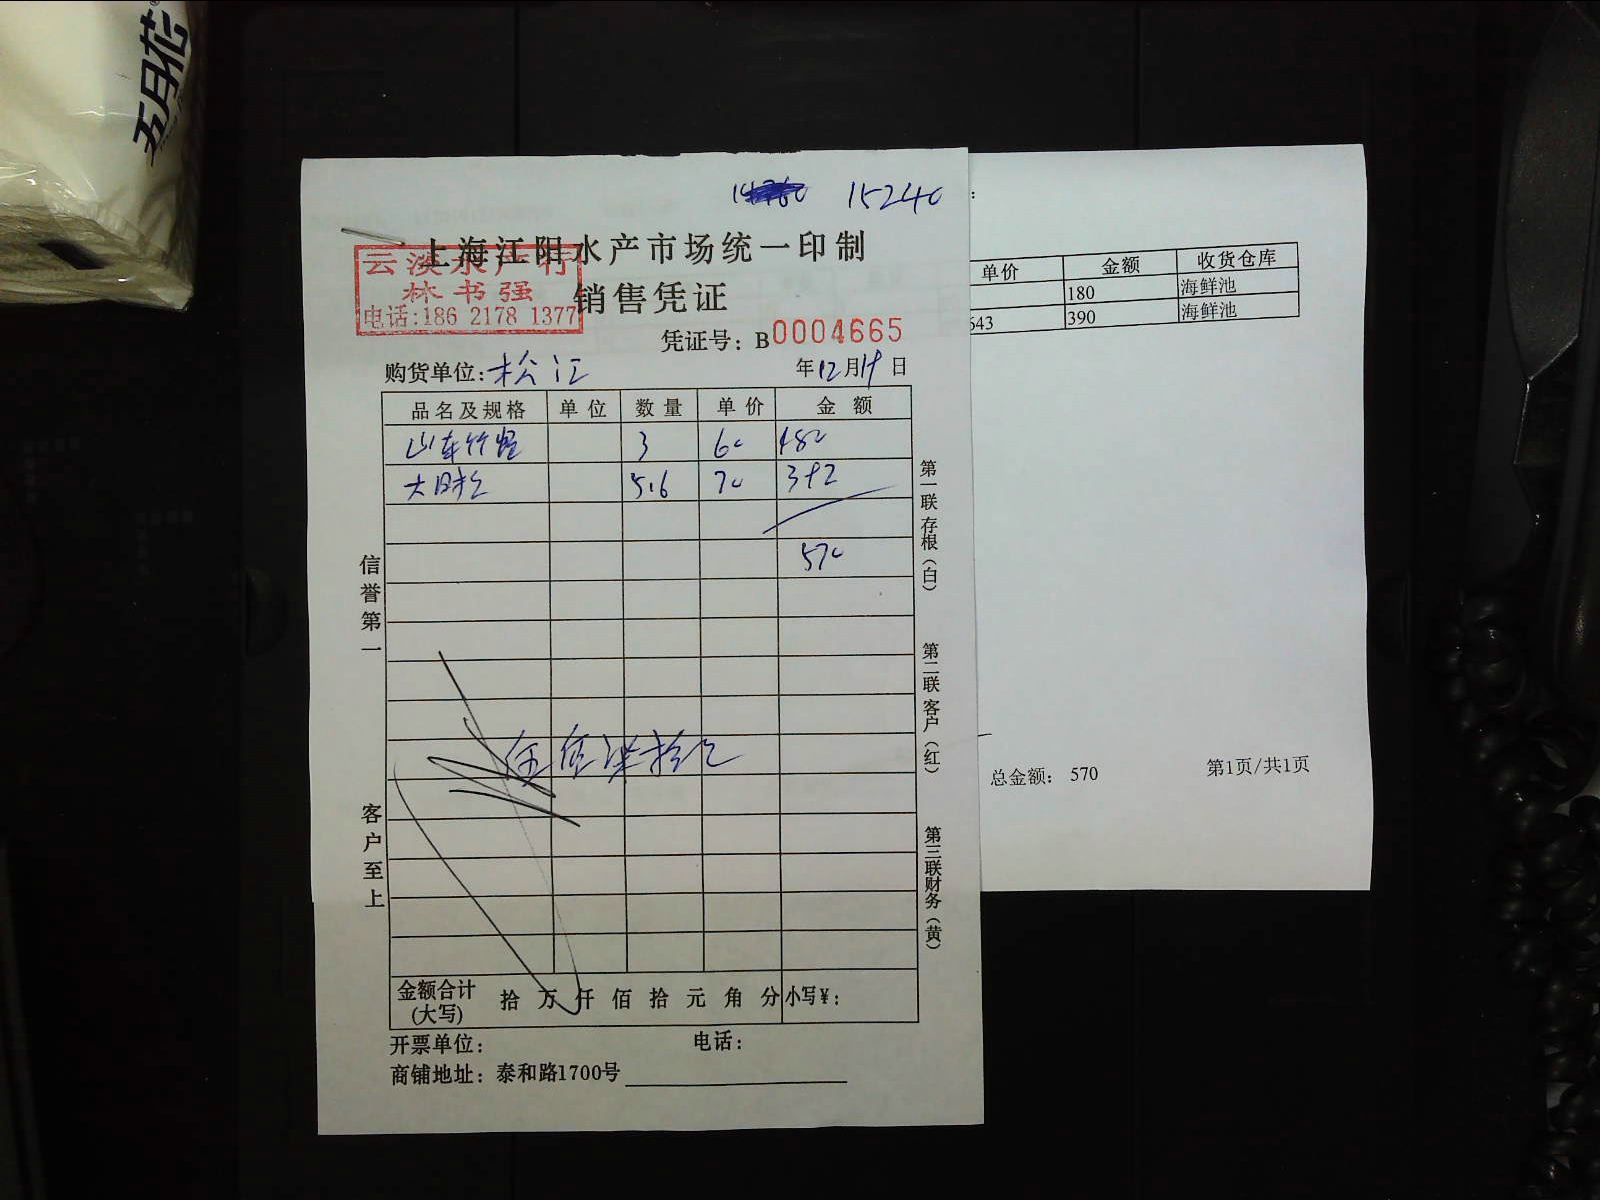 五月花
15240
上海江阳水产市场统一印制
云淡水产行
林书强
电话:186 2178 1377
销售凭证
凭证号: B0004665
购货单位:松江
年12月19日
品名及规格 单位 数量 单价 金额
山东竹蛏 3 60 180
5.6 70 392
570
伍佰柒拾元
信誉第一
客户至上
第一联存根(白)
第二联客户(红)
第三联财务(黄)
金额合计(大写) 拾 万 仟 佰 拾 元 角 分 小写¥:
开票单位: 电话:
商铺地址: 泰和路1700号
单价 金额 收货仓库
180 海鲜池
643 390 海鲜池
总金额: 570 第1页/共1页